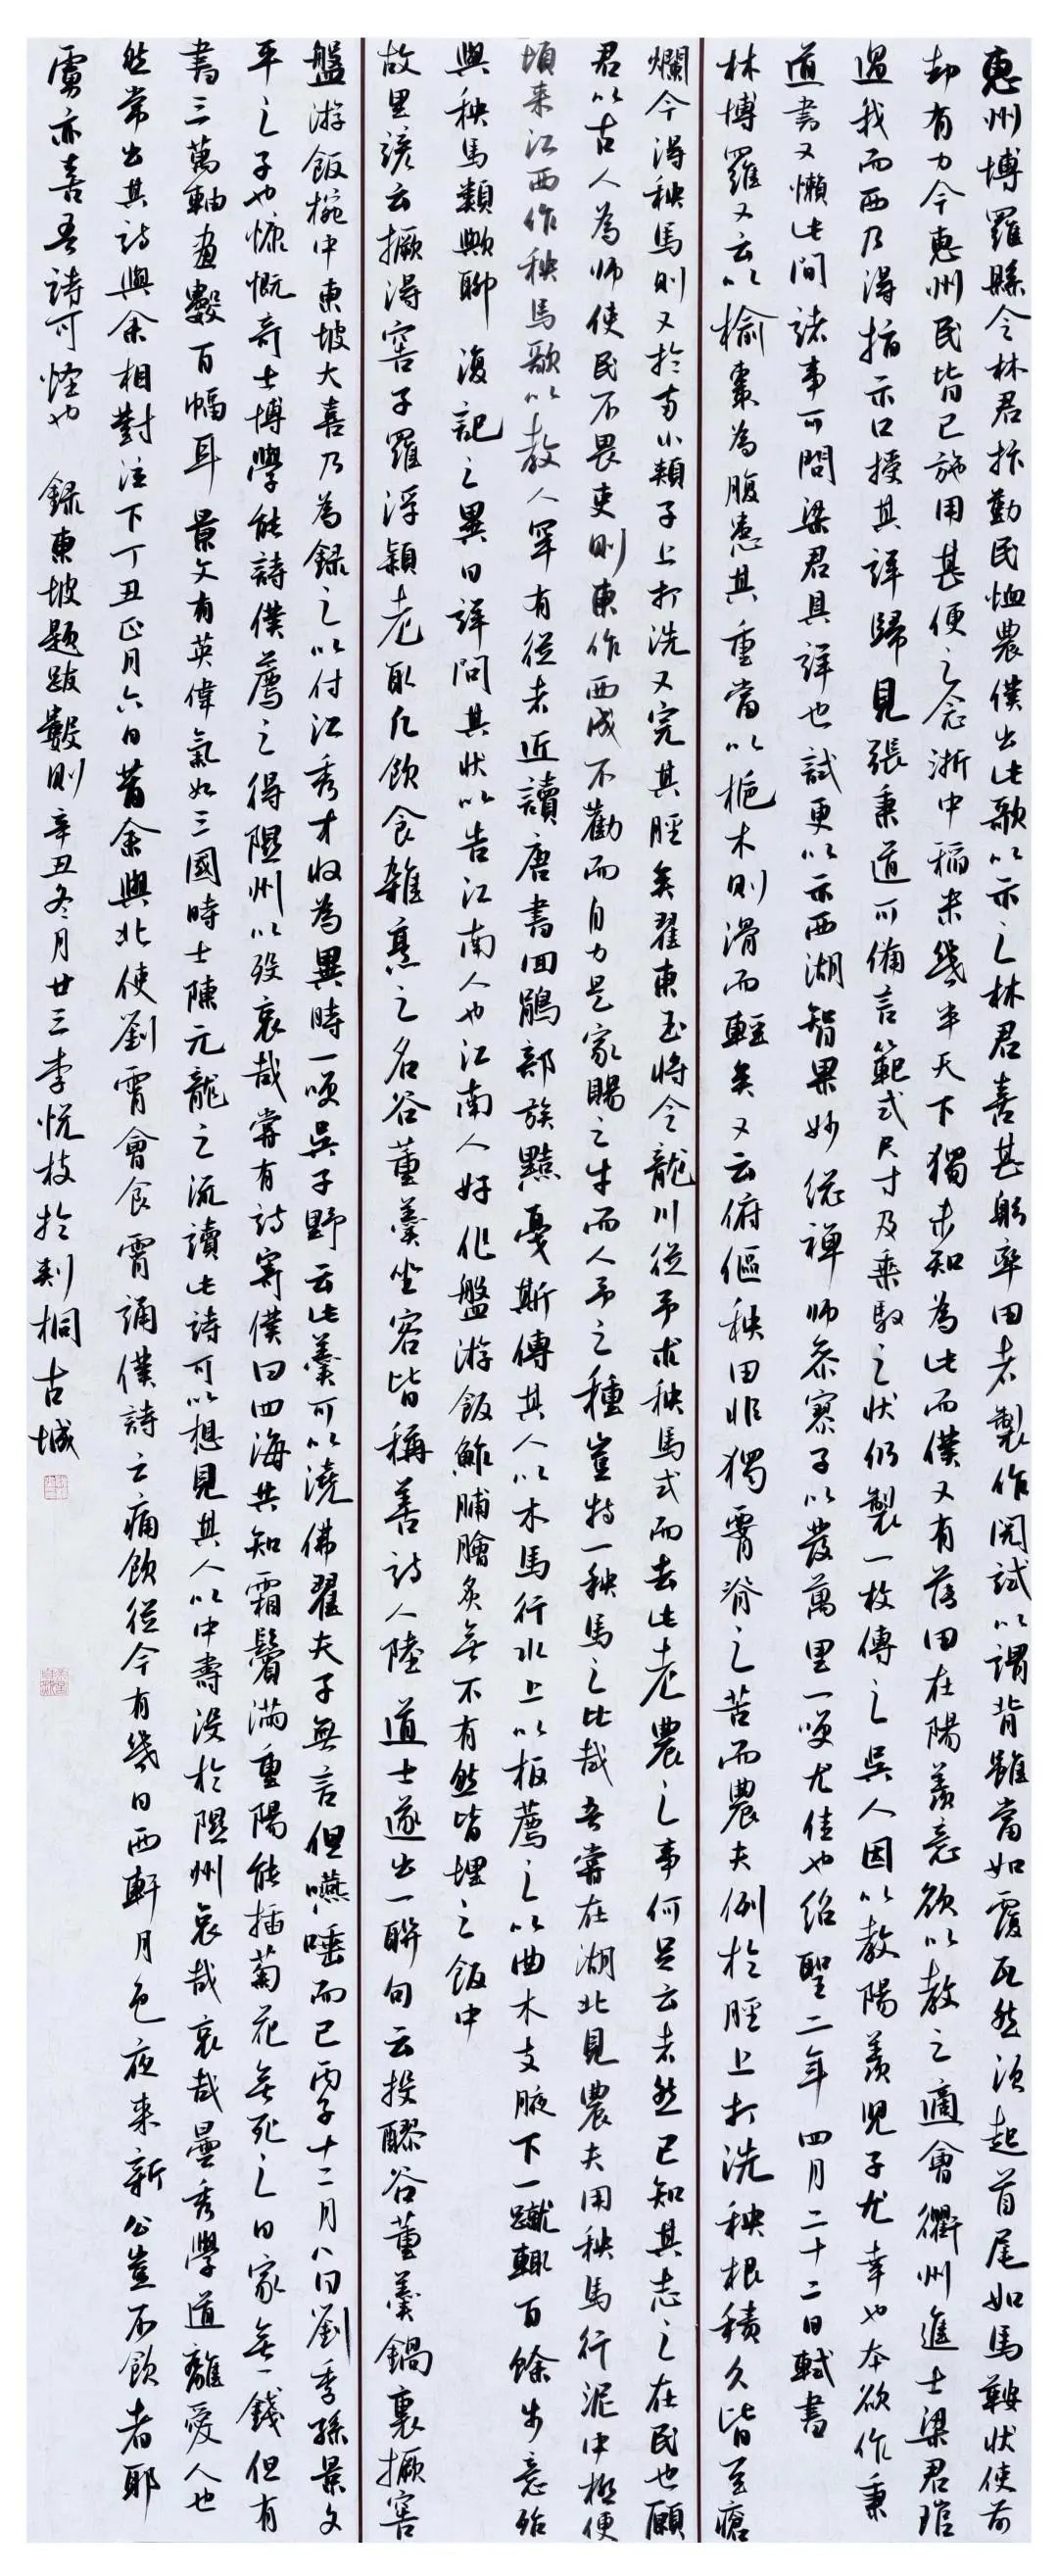 惠州博羅縣令林君抃勤民恤農僕出此歌以示之林君喜甚躬率田者製作閱試以謂背雖當如覆瓦然須起首尾如馬鞍狀使前
却有力今惠州民皆已施用甚便之念浙中稻米幾半天下獨未知為此而僕又有薄田在陽羨意欲以教之適會衢州進士梁君琯
過我而西乃得指示口授其詳歸見張秉道可備言範式尺寸及乘馭之狀仍製一枚傳之吳人因以教陽羨兒子尤幸也本欲作秉
道書又懶此間諸事可問梁君具詳也試更以示西湖智果妙總禪師參寥子以發萬里一笑尤佳也紹聖二年四月二十二日軾書
林博羅又云以榆棗為腹患其重當以梔木則滑而輕矣又云俯傴秧田非獨膂脊之苦而農夫例於脛上打洗秧根積久皆至瘡
爛今得秧馬則又於兩小類子上打洗又完其脛矣翟東玉將令龍川從予求秧馬式而去此老農之事何足云者然已知其志之在民也願
君以古人為師使民不畏吏則東作西成不勸而自力是家賜之牛而人予之種豈特一秧馬之比哉吾嘗在湖北見農夫用秧馬行泥中極便
頃来江西作秧馬歌以教人罕有從者近讀唐書回鶻部族黠戛斯傳其人以木馬行水上以板薦之以曲木支腋下一蹴輒百餘步意殆
與秧馬類歟聊復記之異日詳問其狀以告江南人也江南人好作盤游飯鮓脯膾炙無不有然皆埋之飯中
故里諺云撅得窖子羅浮穎老取凡飲食雜烹之名谷董羹坐客皆稱善詩人陸道士遂出一聯句云投醪谷董羹鍋裏撅窖
盤游飯椀中東坡大喜乃為録之以付江秀才收為異時一笑吳子野云此羹可以澆佛翟夫子無言但嚥唾而已丙子十二月八日劉季孫景文
平之子也慷慨奇士博學能詩僕薦之得隰州以殁哀哉嘗有詩寄僕曰四海共知霜鬢滿重陽能插菊花無死之日家無一錢但有
書三萬軸畫數百幅耳景文有英偉氣如三國時士陳元龍之流讀此詩可以想見其人以中壽没於隰州哀哉哀哉曇秀學道離愛人也
然常出其詩與余相對泣下丁丑正月六日昔余與北使劉霄會食霄誦僕詩云痛飲從今有幾日西軒月色夜来新公豈不飲者耶
虜亦喜吾詩可怪也録東坡題跋數則辛丑冬月廿三李悦枝於刺桐古城